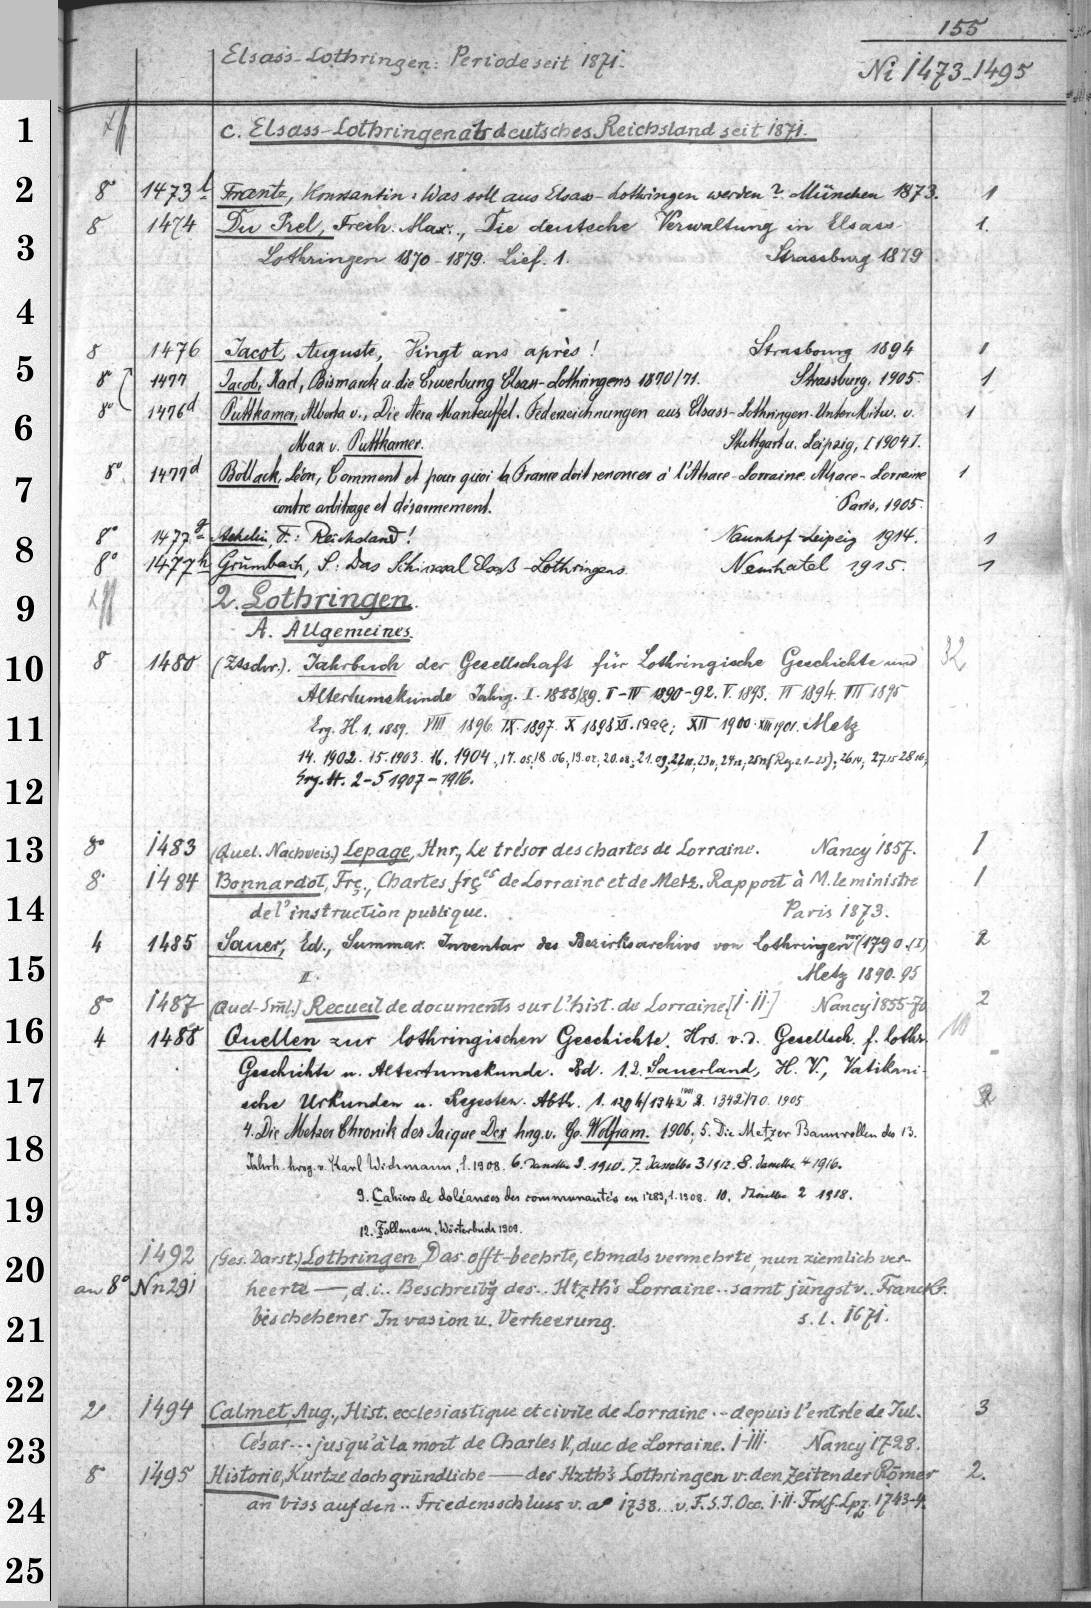 155
Elsass-Lothringen: Periode seit 1871.
Ni 1473-1495
1 c. Elsass-Lothringen als deutsches Reichsland seit 1871.
2 8° 1473 l Frantz, Konstantin: Was soll aus Elsass-Lothringen werden? München 1873. 1
8 1474 Du Prel, Freih. Max., Die deutsche Verwaltung in Elsass- 1.
3 Lothringen 1870-1879. Lief. 1. Strassburg 1879
4
8 1476 Jacot, Auguste, Vingt ans après! Strasbourg 1894 1
5 8° 1477 Jacob, Karl, Bismarck u. die Erwerbung Elsass-Lothringens 1870/71. Strassburg, 1905. 1
8° 1476d Puttkamer, Alberta v., Die Aera Manteuffel. Federzeichnungen aus Elsass-Lothringen. Unter Mitw. v. 1
6 Max v. Puttkamer. Stuttgart u. Leipzig, [1904].
8° 1477d Bollack, Léon, Comment et pour quoi la France doit renoncer à l'Alsace-Lorraine. Alsace-Lorraine 1
7 contre arbitrage et désarmement. Paris, 1905.
8° 1477g F.: Reichsland! Naunhof-Leipzig 1914. 1
8 8° 1477h Grumbach, S: Das Schicksal Elsaß-Lothringens. Neuchatel 1915. 1
9 2. Lothringen.
A. Allgemeines.
10 8 1480 (Ztschr.). Jahrbuch der Gesellschaft für Lothringische Geschichte und 32
Altertumskunde Jahrg. I. 1888/89. II-IV 1890-92. V. 1893. VI 1894. VII 1895
11 Erg. H. 1. 1889. VIII 1896. IX. 1897. X 1898 XI. 1899; XII 1900. XIII 1901. Metz
14. 1902. 15. 1903. 16. 1904., 17. 05, 18. 06, 19. 07, 20. 08, 21. 09, 22 10, 23 11, 24 12, 25 13 (Reg. z. 1-25), 26 14, 27 15 28 16,
12 Erg. H. 2-5 1907-1916.
13 8° 1483 (Quel. Nachweis.) Lepage, Hnr., Le trésor des chartes de Lorraine. Nancy 1857. 1
8° 1484 Bonnardot, Frç., Chartes frçes de Lorraine et de Metz. Rapport à M. le ministre 1
14 de l'instruction publique. Paris 1873.
4 1485 Sauer, Ed., Summar. Inventar des Bezirksarchivs von Lothringen vor (1790. (I) 2
15 II. Metz 1890. 95
8° 1487 (Quel-Smlg.) Recueil de documents sur l'hist. de Lorraine. [I-II.] Nancy 1855-70 2
16 4 1488 Quellen zur lothringischen Geschichte. Hrs. v. d. Gesellsch. f. lothr. 10
Geschichte u. Altertumskunde. Bd. 1. 2. Sauerland, H. V., Vatikani-
17 sche Urkunden u. Regesten. Abth. 1. 1294/1342 1901 2. 1342/70. 1905
18 4. Die Metzer Chronik des Jaique Dex hrsg. v. Gg. Wolfram. 1906, 5. Die Metzer Bannrollen des 13.
Jahrh. hrsg. v. Karl Wichmann, 1. 1908. 6. Dasselbe 2. 1910. 7. Dasselbe 3 1912. 8. Dasselbe 4 1916.
19 9. Cahiers de doléances des communautés en 1789, 1. 1908. 10. Dasselbe 2 1918.
12. Follmann, Wörterbuch 1909.
1492 (Ges. Darst.) Lothringen Das offt-beehrte, ehmals vermehrte, nun ziemlich ver-
20 an 8° Nn 291 heerte —, d. i.. Beschreibg des.. Htzth's Lorraine.. samt jüngst v.. Franckr.
21 beschehener Invasion u. Verheerung. s. l. 1671.
22
2° 1494 Calmet, Aug., Hist. ecclesiastique et civile de Lorraine.-- depuis l'entrée de Jul. 3
23 César... jusqu'à la mort de Charles V, duc de Lorraine. I-III. Nancy 1728.
8 1495 Historie, Kurtze doch gründliche — des Hzth's Lothringen v. den Zeiten der Römer 2.
24 an biss auf den.. Friedensschluss v. ao 1738... v. F. S. J. Occ. I-II. Frkf. Lpz. 1743-4.
25